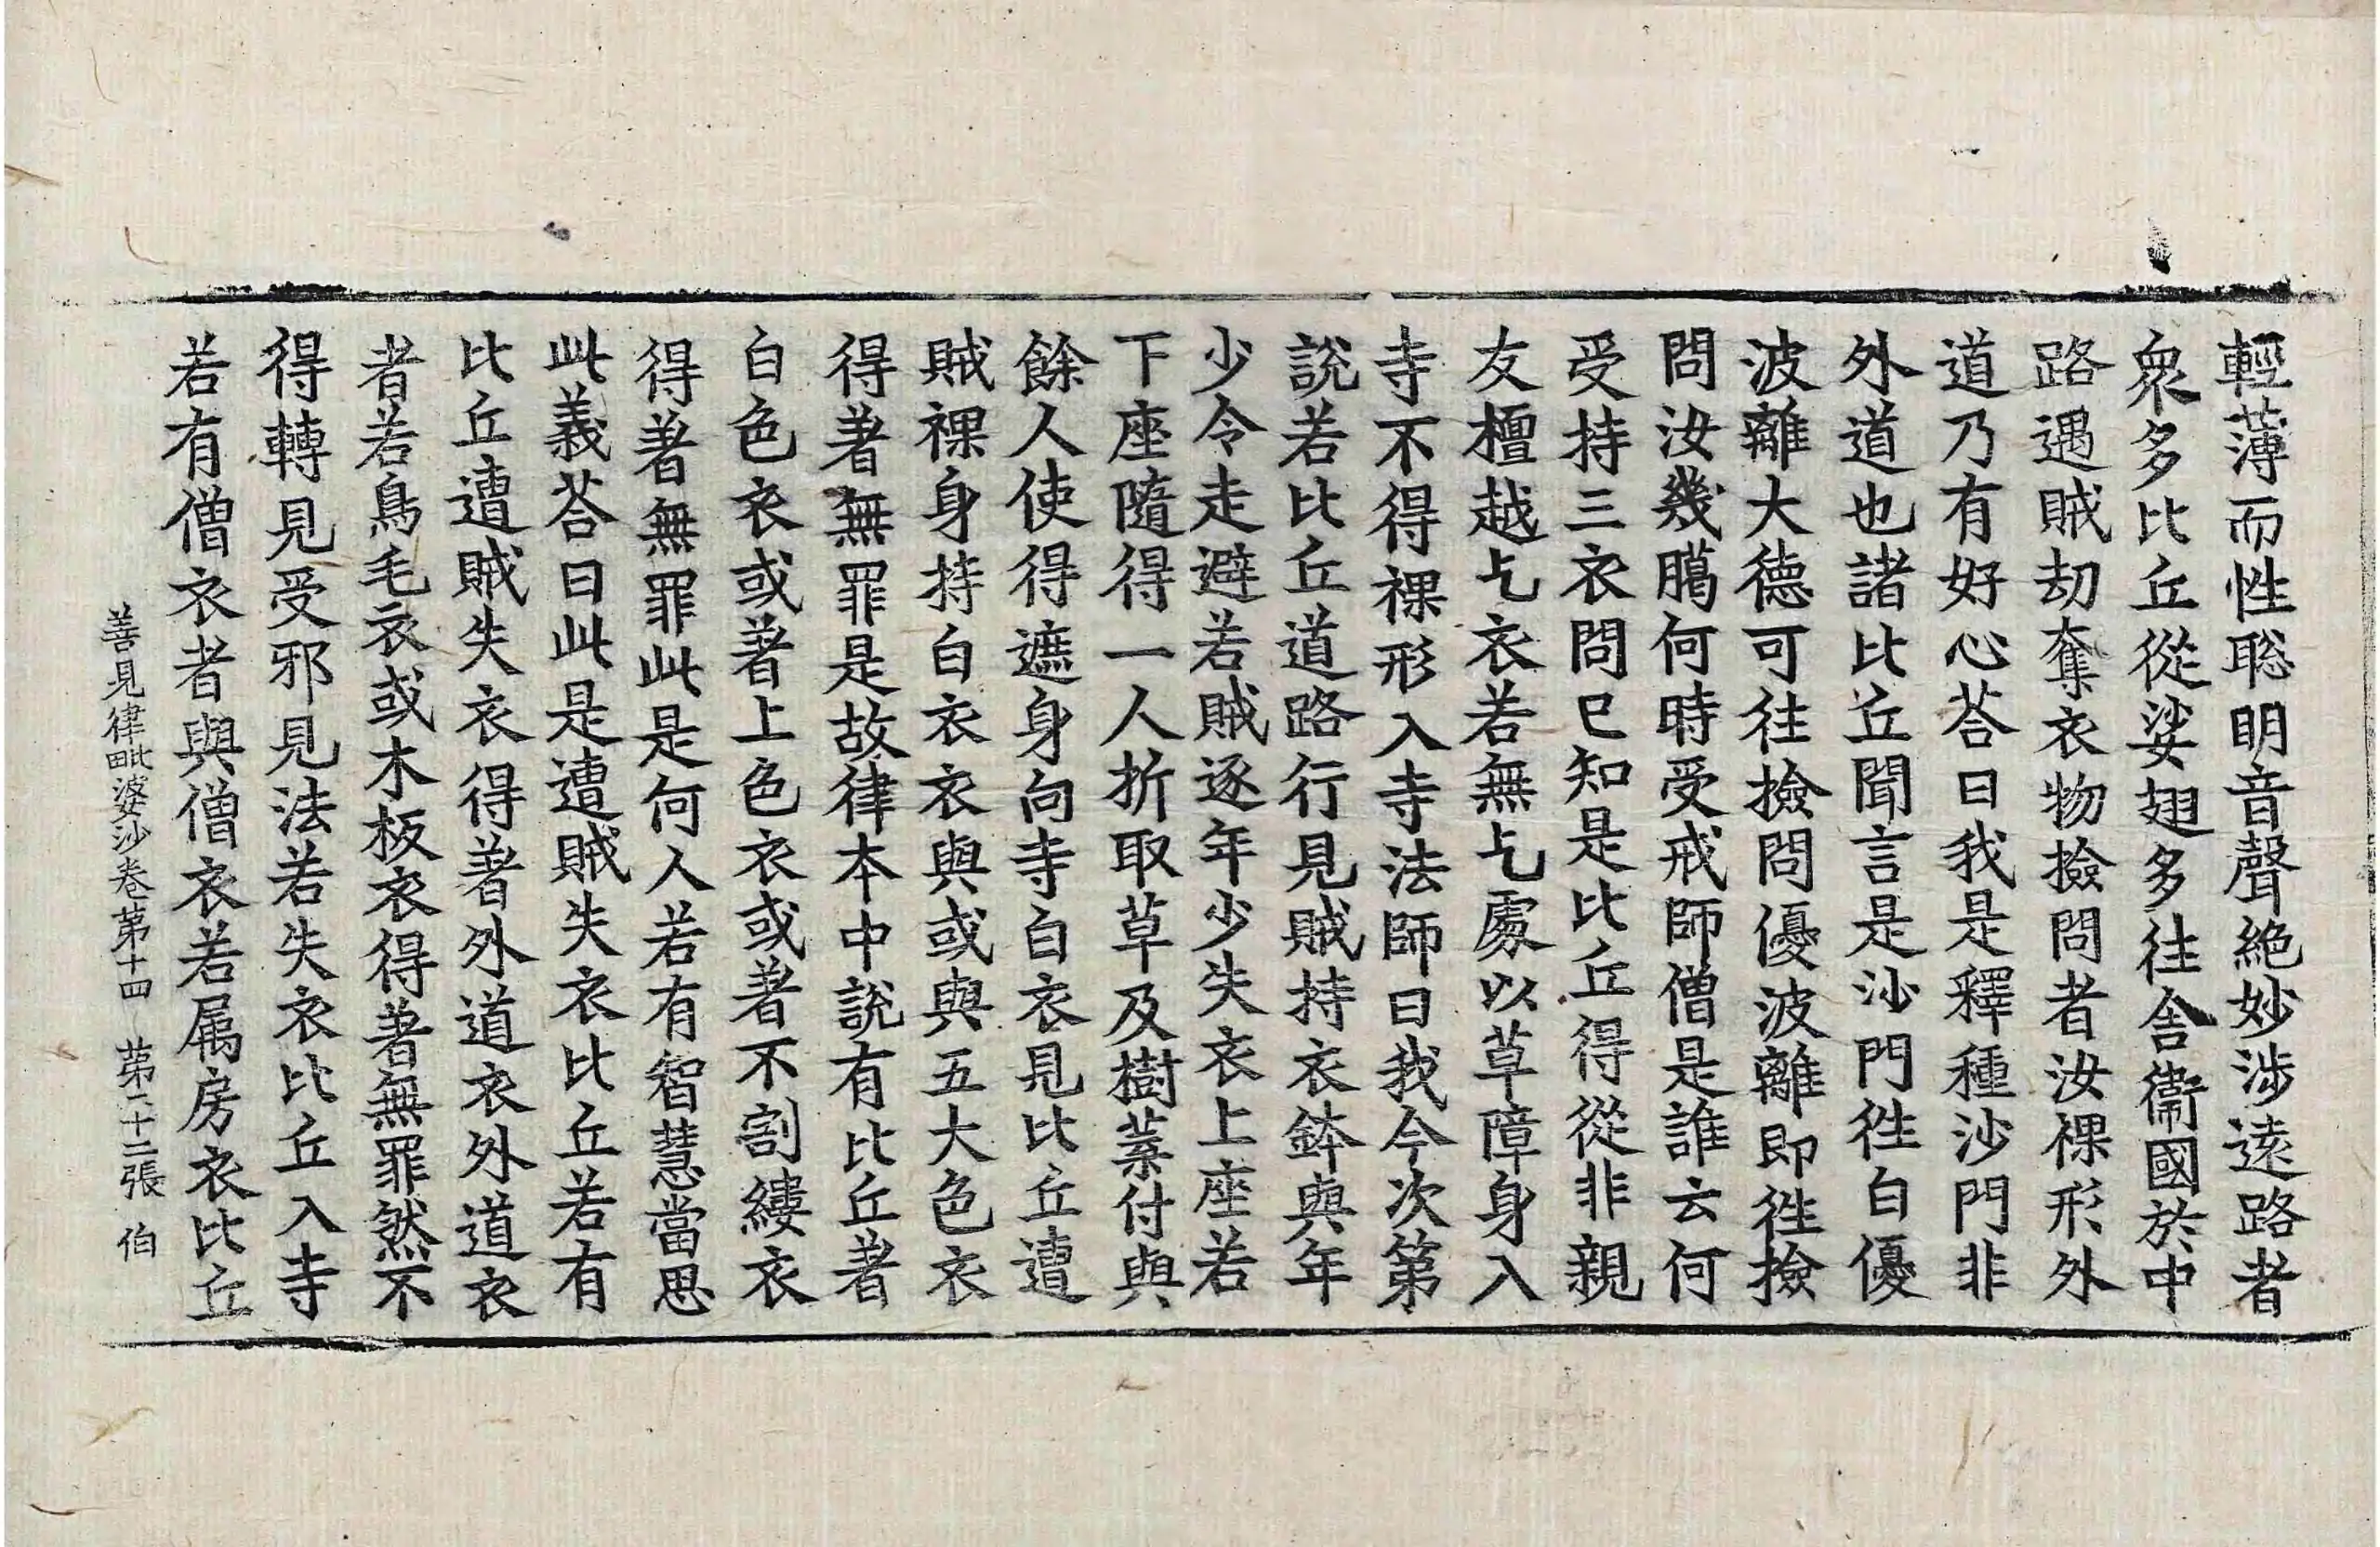 輕薄而性聡明音聲絶妙涉遠路者
衆多比丘從娑翅多徃舎衞國於中
路遇賊刧奪衣物撿問者汝裸形外
道乃有好心荅曰我是釋種沙門非
外道也諸比丘聞言是沙門徃白優
波離大德可徃撿問優波離即徃撿
問汝幾臈何時受戒師僧是誰云何
受持三衣問已知是比丘得從非親
友檀越乞衣若無乞處以草障身入
寺不得裸形入寺法師曰我今次第
說若比丘道路行見賊持衣鉢與年
少令走避若賊逐年少失衣上座若
下座隨得一人折取草及樹葉付與
餘人使得遮身向寺白衣見比丘遭
賊裸身持白衣衣與或與五大色衣
得著無罪是故律本中說有比丘著
白色衣或著上色衣或著不割縷衣
得著無罪此是何人若有智慧當思
此義荅曰此是遭賊失衣比丘若有
比丘遭賊失衣得著外道衣外道衣
者若鳥毛衣或木板衣得著無罪然不
得轉見受邪見法若失衣比丘入寺
若有僧衣者與僧衣若属房衣比丘
善見律毗婆沙卷第十四　第二十二張　伯